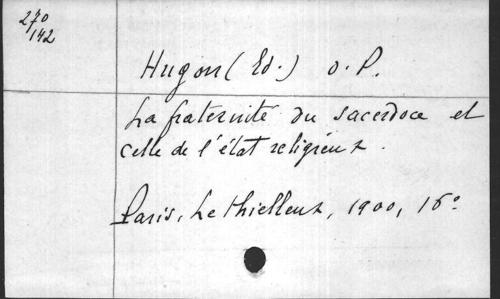 270
/142
Hugon (Ed.) O.P.
La fraternité du sacerdoce et
celle de l'état religieux.
Paris, Lethielleux, 1900, 16°